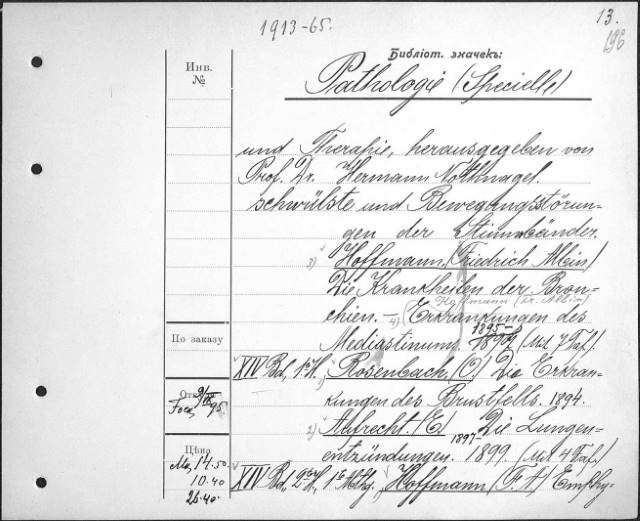 1913-65.
13.
196
Библіот. значекъ:
Инв.
№
Pathologie (Specielle)
und Therapie, herausgegeben von
Prof. Dr. Hermann Nothnagel.
schwülste und Bewegungsstörun-
gen der Stimmbänder.
3) Hoffmann (Friedrich Albin)
Die Krankheiten der Bron-
Hoffmann (Fr. Albin)
chien. — 4) Erkrankungen des
1895-
Mediastinums. (Mit 7 Taf.).
По заказу
XIV Bd, 1. H., Rosenbach (O) Die Erkran-
kungen des Brustfells. 1894.
95.
2) Aufrecht (E) Die Lungen-
1897-
Цѣна
entzündungen. 1899. (Mit 4 Taf.)
14.50
10.40
XIV Bd, 2. H, 1. Abtg. Hoffmann (F. A) Emphy-
26.40